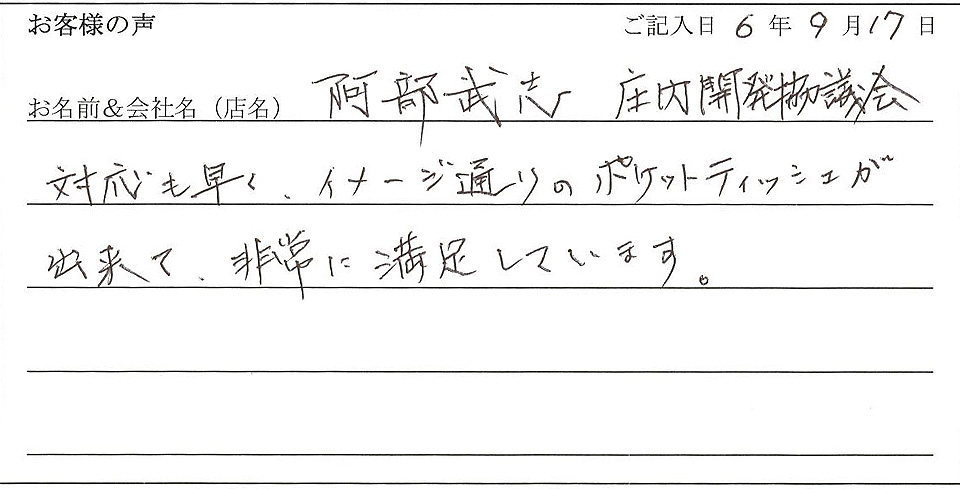 お客様の声 ご記入日 6年9月17日
お名前&会社名（店名） 阿部武志 庄内開発協議会
対応も早く、イメージ通りのポケットティッシュが
出来て、非常に満足しています。